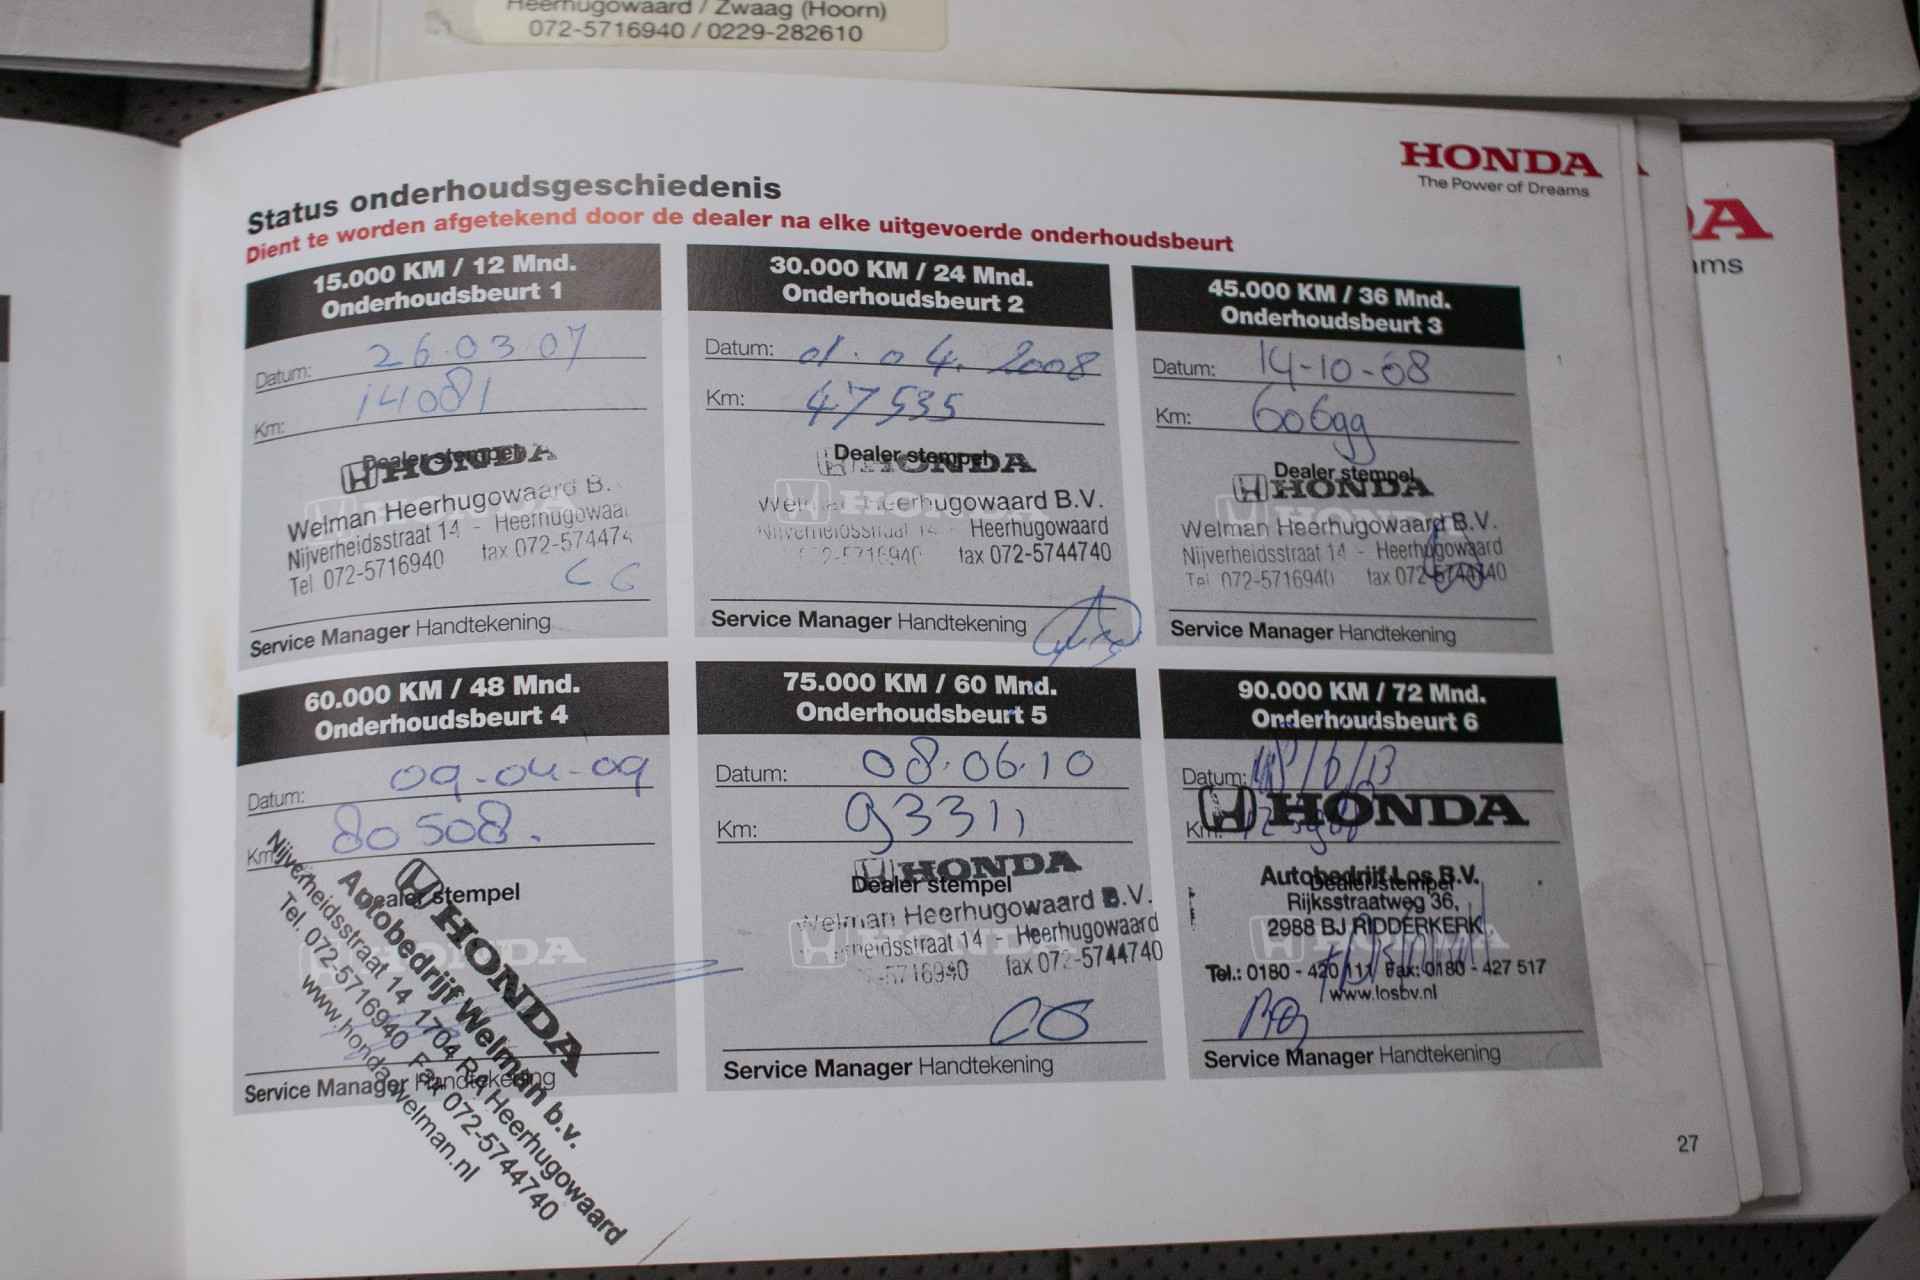 Heerhugowaard / Zwaag (Hoorn)
072-5716940 / 0229-282610
HONDA
The Power of Dreams
Status onderhoudsgeschiedenis
Dient te worden afgetekend door de dealer na elke uitgevoerde onderhoudsbeurt
15.000 KM / 12 Mnd.
Onderhoudsbeurt 1
Datum: 26.03.07
Km: 14081
Dealer stempel
HONDA
Welman Heerhugowaard B.
Nijverheidsstraat 14 - Heerhugowaa
Tel 072-5716940 fax 072-574474
Service Manager Handtekening
30.000 KM / 24 Mnd.
Onderhoudsbeurt 2
Datum: 01.04.2008
Km: 47535
Dealer stempel
HONDA
Welman Heerhugowaard B.V.
Nijverheidsstraat 14 - Heerhugowaard
072-5716940 fax 072-5744740
Service Manager Handtekening
45.000 KM / 36 Mnd.
Onderhoudsbeurt 3
Datum: 14-10-08
Km: 60699
Dealer stempel
HONDA
Welman Heerhugowaard B.V.
Nijverheidsstraat 14 - Heerhugowaard
Tel 072-5716940 fax 072-5744740
Service Manager Handtekening
60.000 KM / 48 Mnd.
Onderhoudsbeurt 4
Datum: 09-04-09
Km: 80508.
Dealer stempel
HONDA
Autobedrijf Welman b.v.
Nijverheidsstraat 14 1704 RA Heerhugowaard
Tel. 072-5716940 Fax 072-5744740
www.hondawelman.nl
Service Manager Handtekening
75.000 KM / 60 Mnd.
Onderhoudsbeurt 5
Datum: 08.06.10
Km: 93311
HONDA
Dealer stempel
Welman Heerhugowaard B.V.
rheidsstraat 14 - Heerhugowaard
-5716940 fax 072-5744740
Service Manager Handtekening
90.000 KM / 72 Mnd.
Onderhoudsbeurt 6
Datum: 18/6/13
Km:
HONDA
Autobedrijf Los B.V.
Dealer stempel
Rijksstraatweg 36,
2988 BJ RIDDERKERK
Tel.: 0180 - 420 111 Fax: 0180 - 427 517
www.losbv.nl
Service Manager Handtekening
27